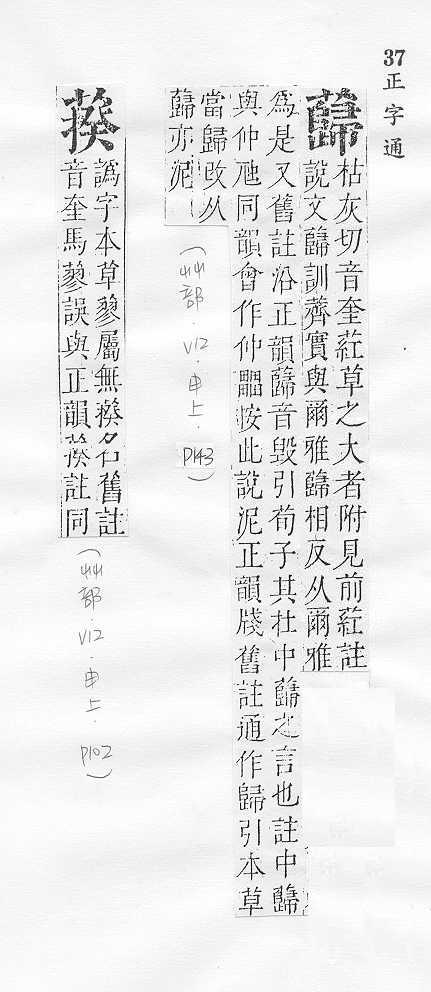 37正字通
蘬
枯灰切音奎葒草之大者附見前葒註
說文蘬訓薺實與爾雅蘬相反从爾雅
爲是又舊註沿正韻蘬音毀引荀子其杜中蘬之言也註中蘬
與仲虺同韻會作仲䰆按此說泥正韻牋舊註通作歸引本草
當歸改从
蘬亦泥
(艸部.V12.申上.P143)
葵
譌字本草蓼屬無葵名舊註
音奎馬蓼誤與正韻葵註同
(艸部.V12.申上.P102)